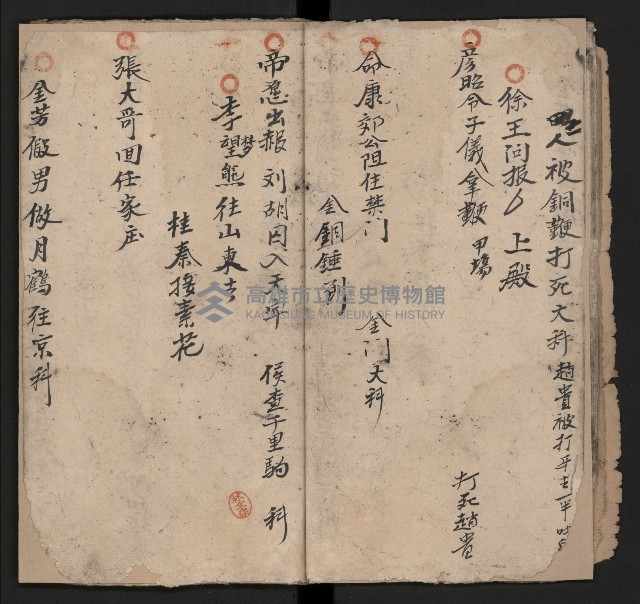 四人被銅鞭打死大科 趙貴被打平去一平
徐王问报 上殿
彦昭令子儀拿鞭 甲場
打死趙貴
命康郊公阻住禁门 金门大科
金銅錘
帝怒出赦刘胡囚入天牢 侯查千里駒 科
李夢望熊往山東去
桂秦接素花
張大哥回任家庄
金芳假男做月鶴往京科
高雄市立歷史博物館
KAOHSIUNG MUSEUM OF HISTORY